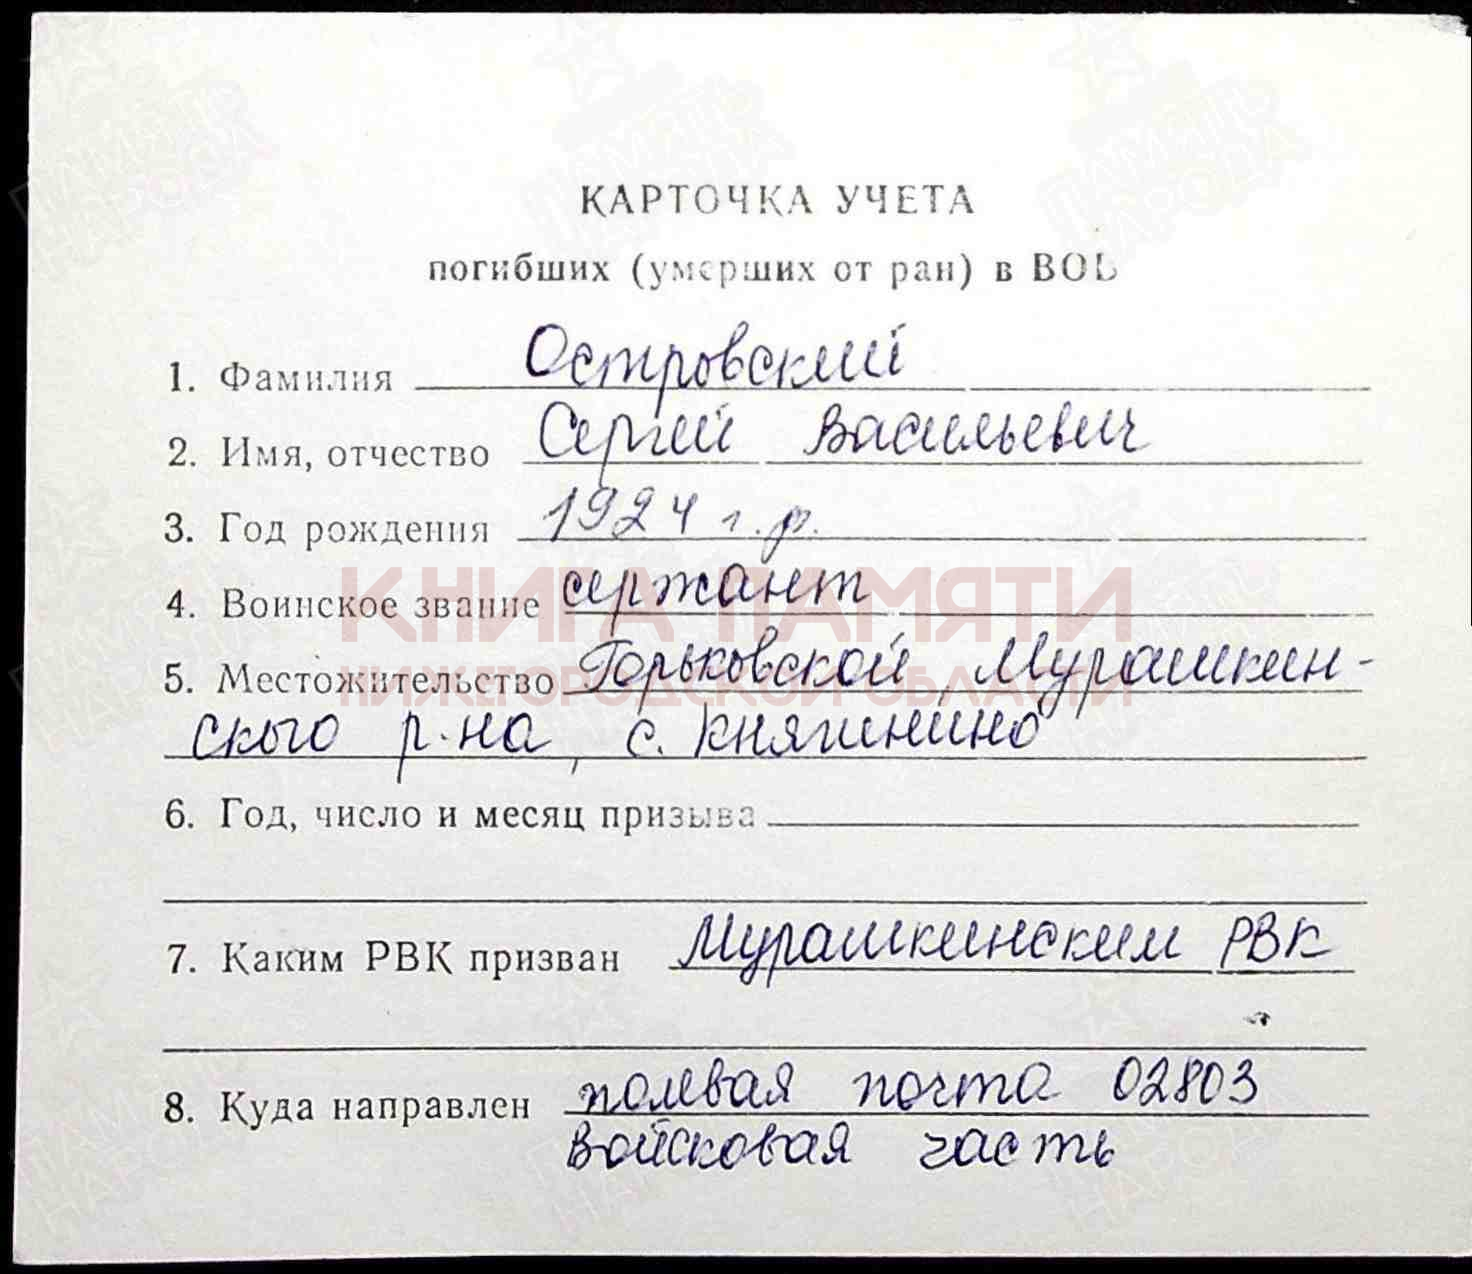 КАРТОЧКА УЧЕТА
погибших (умерших от ран) в ВОВ
1. Фамилия Островский
2. Имя, отчество Сергей Васильевич
3. Год рождения 1924 г.р.
4. Воинское звание сержант
КНИГА ПАМЯТИ
5. Местожительство Горьковской, Мурашкин-
НИЖЕГОРОДСКОЙ ОБЛАСТИ
ского р-на, с. Княгинино
6. Год, число и месяц призыва
7. Каким РВК призван Мурашкинским РВК
8. Куда направлен полевая почта 02803
войсковая часть
ПАМЯТЬ НАРОДА